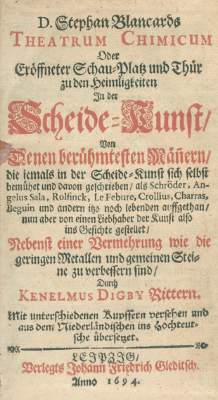 D. Stephan Blancards
THEATRUM CHIMICUM
Oder
Eröffneter Schau-Platz und Thür
zu den Heimligkeiten
In der
Scheide-Kunst/
Von
Denen berühmtesten Mäñern/
die jemals in der Scheide-Kunst sich selbst
bemühet und davon geschrieben/ als Schröder, An-
gelus Sala, Rolfinck, Le Febure, Crollius, Charras,
Beguin und andern itzo noch lebenden auffgethan/
nun aber von einen Liebhaber der Kunst also
ins Gesichte gestellet/
Nebenst einer Vermehrung wie die
geringen Metallen und gemeinen Stei-
ne zu verbessern sind/
Durch
KENELMUS DIGBY Rittern.
Mit unterschiedenen Kupffern versehen und
aus dem Niederländischen ins Hochteut-
sche übersetzet.
LEIPZIG/
Verlegts Johann Friedrich Gleditsch.
Anno 1694.